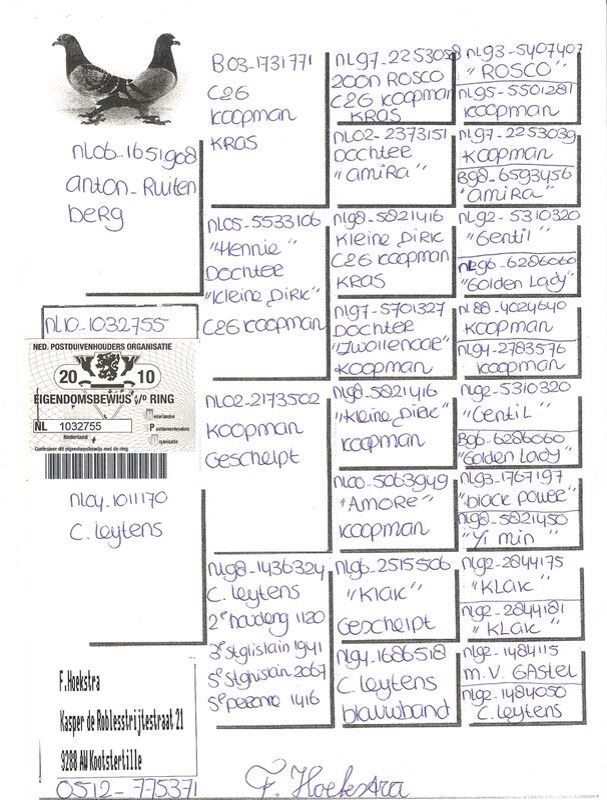 NL06-1651908
Anton-Ruiten
berg
NL10-1032755
NED. POSTDUIVENHOUDERS ORGANISATIE
20 10
EIGENDOMSBEWIJS v/d RING
NL 1032755
Nederland
Nederlandse
Postduivenhouders
Organisatie
Controleer dit eigendomsbewijs met de ring
NL04-1011170
C. Leytens
F.Hoekstra
Kasper de Roblesstrijtestraat 21
9288 AW Kootstertille
0512-775371
B03-1731771
C26
Koopman
KRAS
NL05-5533106
"Hennie"
Dochter
"Kleine Dirk"
C26 Koopman
NL02-2173502
Koopman
Gescheipt
NL98-1436324
C. Leytens
2e houdeng 1120
3e St glislain 1941
5e St ghislain 2067
5e perone 1416
NL97-2253058
zoon ROSCO
C26 Koopman
KRAS
NL02-2373151
Dochter
"Amira"
NL98-5821416
Kleine Dirk
C26 Koopman
KRAS
NL97-5701327
Dochter
"Zwollenaar"
Koopman
NL98-5821416
"Kleine Dirk"
Koopman
NL00-5063949
"AMORE"
Koopman
NL96-2515506
"Klak"
Gescheipt
NL94-1686518
C. Leytens
blauwband
NL93-5407407
"ROSCO"
NL95-5501281
Koopman
NL97-2253039
Koopman
B98-6593456
"Amira"
NL92-5310320
"Gentil"
NL96-6286060
"Golden Lady"
NL88-4024640
Koopman
NL94-2783576
Koopman
NL92-5310320
"Gentil"
B96-6286060
"Golden Lady"
NL93-1767197
"black power"
NL98-5821450
"Yi min"
NL92-2844175
"KLAK"
NL92-2844181
"KLAK"
NL92-1484115
M.V. GAstel
NL92-1484050
C. Leytens
F. Hoekstra